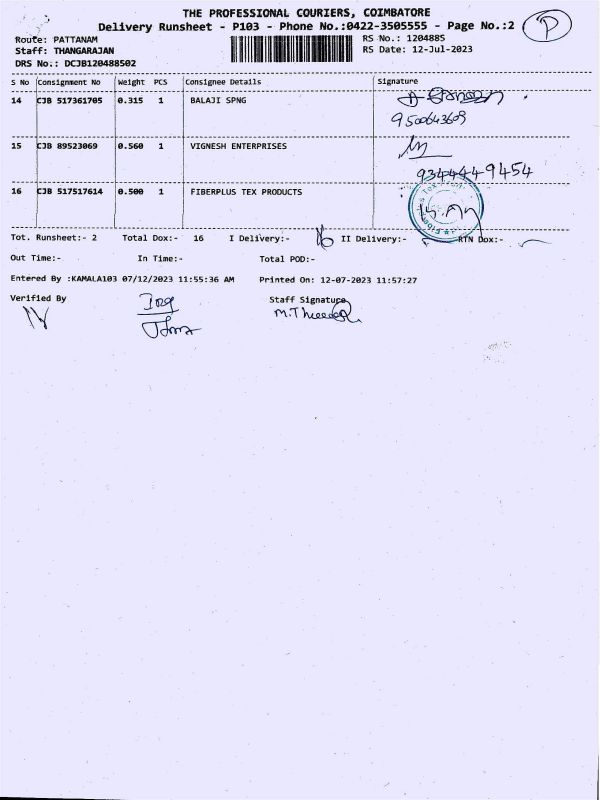 THE PROFESSIONAL COURIERS, COIMBATORE
Delivery Runsheet - P103 - Phone No.:0422-3505555 - Page No.:2
P
Route: PATTANAM
RS No.: 1204885
Staff: THANGARAJAN
RS Date: 12-Jul-2023
DRS No.: DCJB120488502
S No Consignment No Weight PCS Consignee Details Signature
14 CJB 517361705 0.315 1 BALAJI SPNG
9500643609
15 CJB 89523069 0.560 1 VIGNESH ENTERPRISES
9344449454
16 CJB 517517614 0.500 1 FIBERPLUS TEX PRODUCTS
Tot. Runsheet:- 2 Total Dox:- 16 I Delivery:- 16 II Delivery:- RTN Dox:-
Out Time:- In Time:- Total POD:-
Entered By :KAMALA103 07/12/2023 11:55:36 AM Printed On: 12-07-2023 11:57:27
Verified By Staff Signature